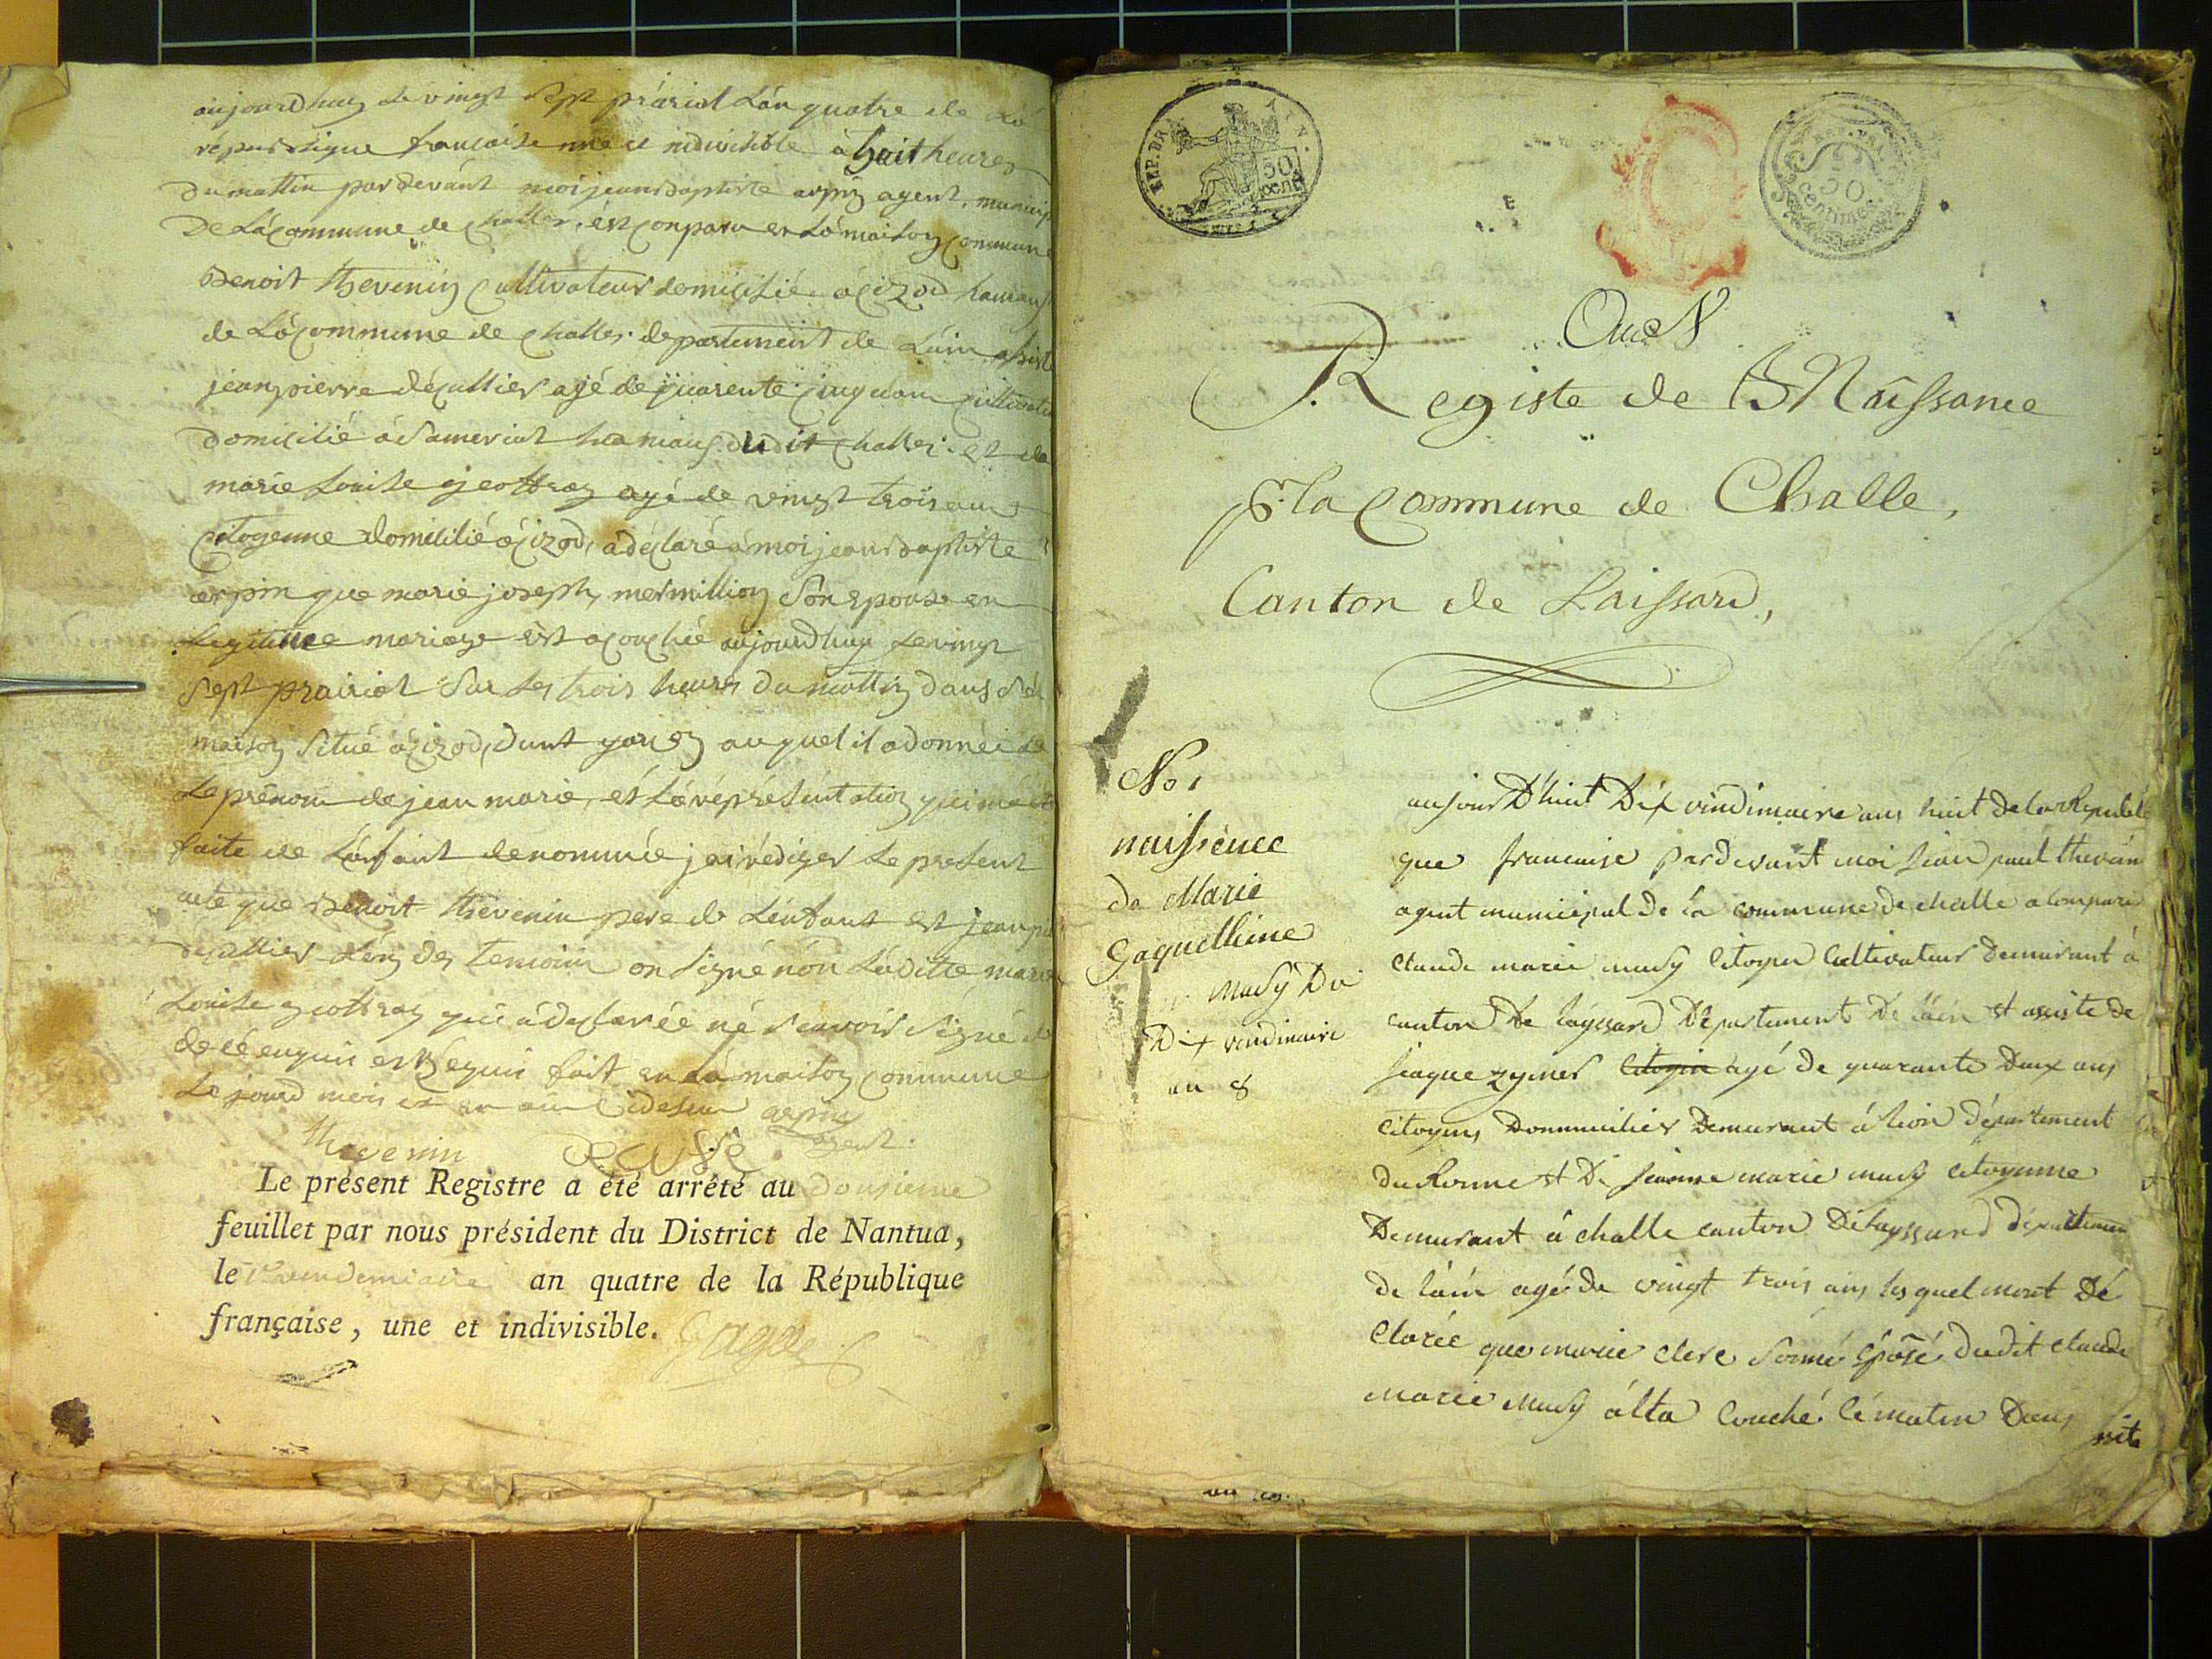 aujourdhuy le vingt sept prairial L'an quatre de La
république francaise une et indivisible à huit heures
du mattin pardevant moi jean baptiste arpin agent municip
De La Commune de Challes, est Conparu en La maison Commune
Benoit thevenin Cultivateur domicilié a Cizod hamaus
de La Commune de Challes departement de L'ain assisté
jean pierre décullier agé de quarente Cinq ans Cultivate
domicilié à hamaus dudit Challes et de
marie Louise geoffray agé de vingt trois ans
Citoyenne domicilié a Cizod, a déclaré a moi jean baptiste
arpin que marie joseph mermillion Son epouse en
Legitime mariage est acouchée aujourdhuy Le vingt
Sept prairial Sur Les trois heures du mattin dans Sa
maison Situé a Cizod, dunt garçon auquel il a donnée
Le prénom de jean marie, et La réprésentation qui m'a été
faite de L'anfant denommée j'ai rédiger Le present
acte que Benoit thevenin pere de L'enfant est jean pi
décullier L'un des temoins on Signé non La ditte marie
Louise geoffray qui a declarée né Seavoir Signé
de cé enquis est Requis fait en La maison Commune
Le jourd mois et an Cidesus arpin
thevenin agent
Le présent Registre a été arrêté au douzieme
feuillet par nous président du District de Nantua,
le vendemiaire an quatre de la République
française, une et indivisible.
REP. FRA.
50
cent
REP. FRA.
50
Centimes
Registe de Naissance
pr la Commune de Challe,
Canton de Laissard,
No 1
naissence
de Marie
Gaquelline
Musy Du
Dix vindimaire
an 8
aujourd'huit Dix vindimaire ans huit De la Republi
que francaise pardevant moi Jean paul thevenin
agent municipal De la commune De challe a Comparu
Claude marie musy Citoyen Cultivateur Demeurant à
canton De layssard Département De l'ain et assisté de
Jiaque zymer Citoyin agé De quarante Deux ans
Citoyens Dommicilier Demeurant à lion département
du Ronne et De Jeanne marie musy Citoyenne
Demeurant à challe canton De layssard départemen
de l'ain agé de vingt trois ans les quel mont Dé
Clarée que marie Clerc Sonné Epôsé dudit Claude
marie musy à lta Couché Cé matin Dans